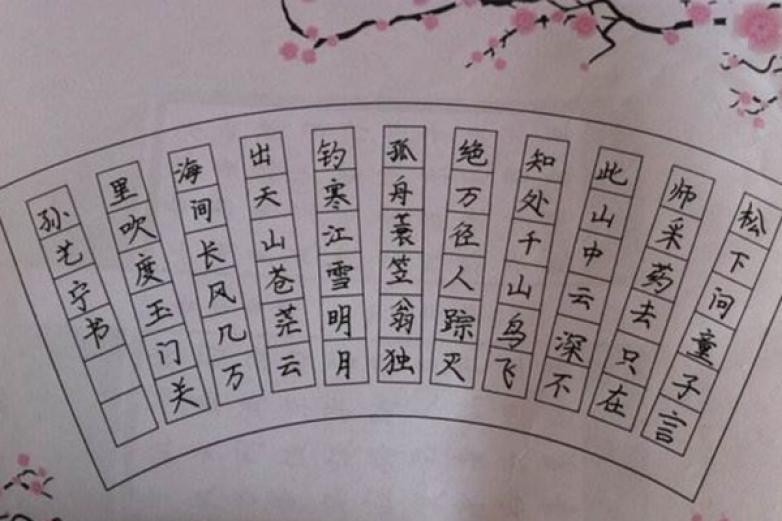 松下问童子言
师采药去只在
此山中云深不
知处千山鸟飞
绝万径人踪灭
孤舟蓑笠翁独
钓寒江雪明月
出天山苍茫云
海间长风几万
里吹度玉门关
孙艺宁书